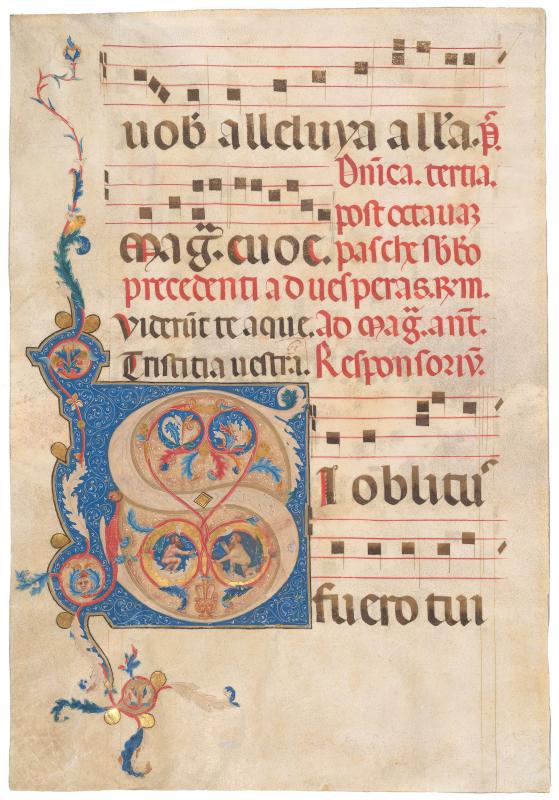 uob̄ alleluya all'a. p̄.
Dn̄ica. tertia.
post octauas
Mag̃. euoe. pasche sb̄bo
precedenti ad uesperas. R̄m.
Viderūt te aque. Ad mag̃. ant̄.
Tristitia uestra. Responsoriū.
SI oblitus
fuero tui